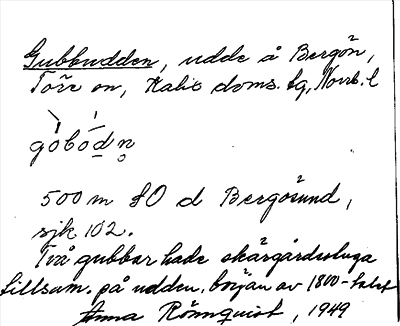 Gubbudden, udde å Bergön,
Töre sn, Kalix doms. tg, Norrb. l
gòbódn̥
500 m SO d Bergösund,
sjk 102.
Två gubbar hade skärgårdsstuga
tillsam. på udden, början av 1800-talet
Anna Rönnquist, 1949